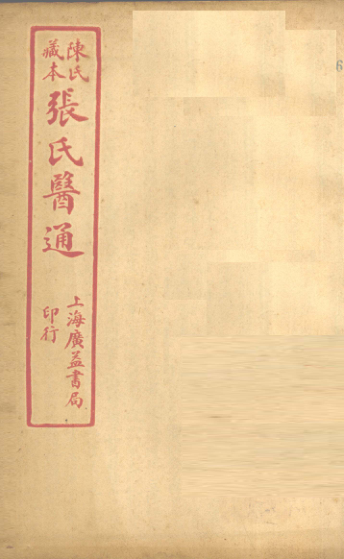 陳氏
藏本
張氏醫通
上海廣益書局
印行
6